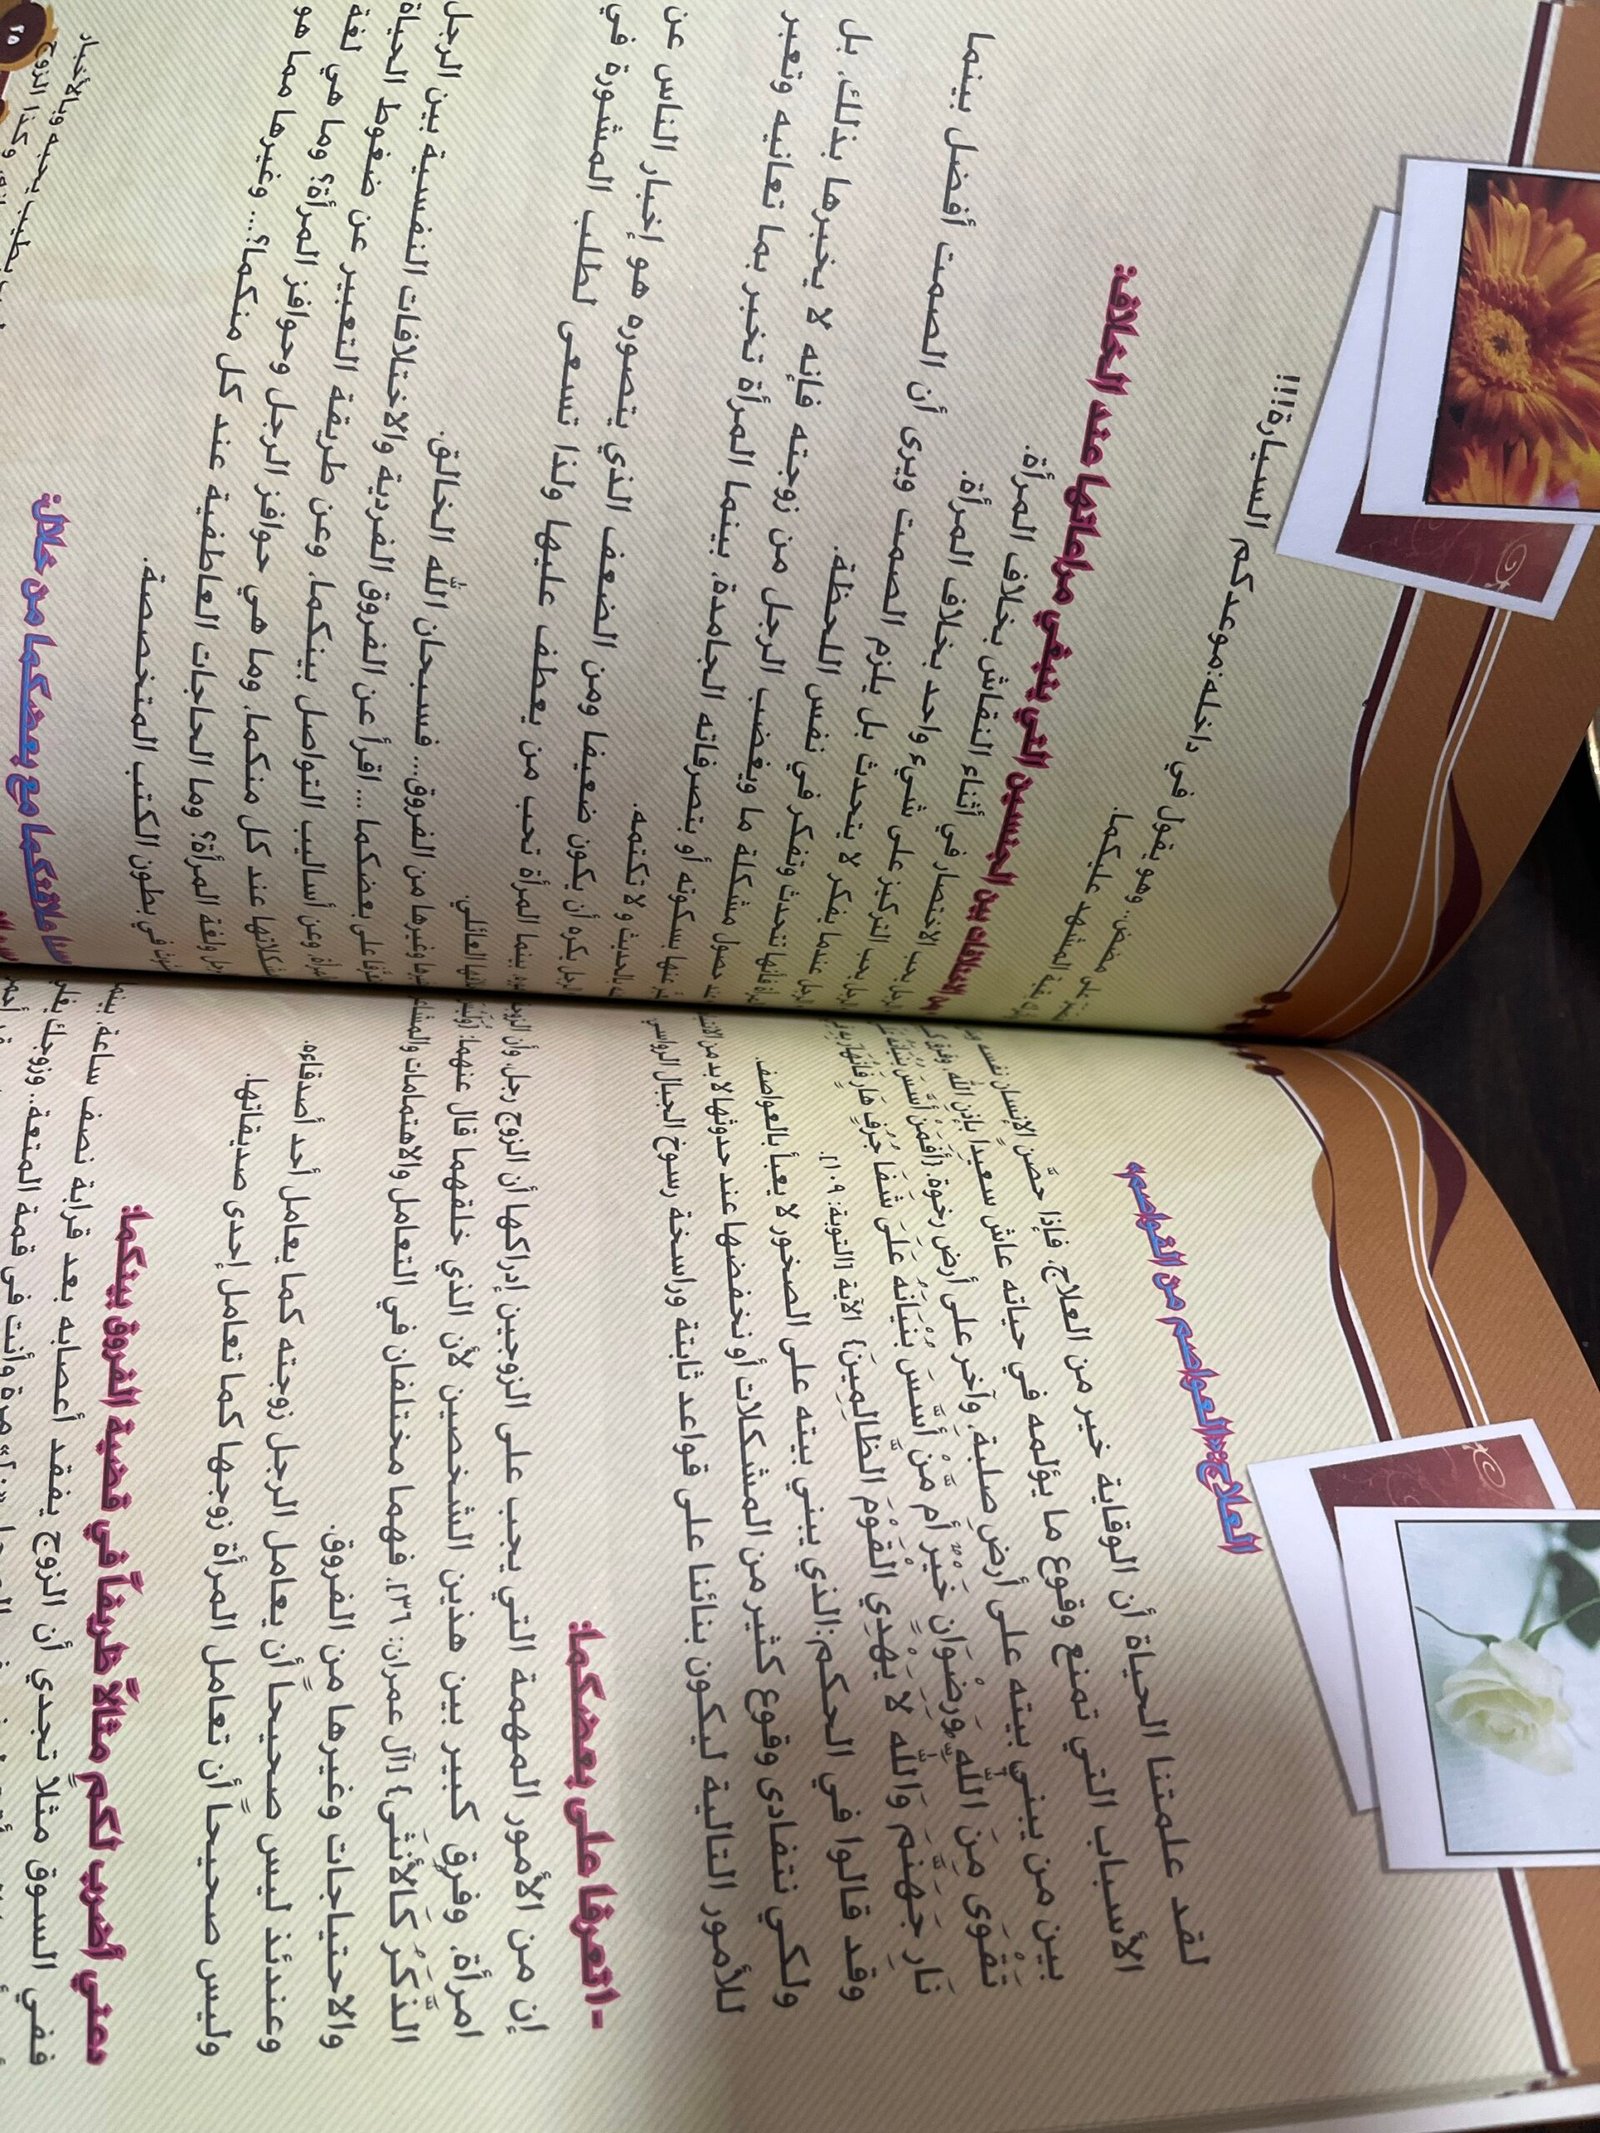 العلاج: «العواصم من القواصم»
لقد علمتنا الحياة أن الوقاية خير من العلاج. فإذا حصَّن الإنسان نفسه
الأسباب التي تمنع وقوع ما يؤلمه في حياته عاش سعيداً بإذن الله. وفرق
بين من يبني بيته على أرض صلبة. وآخر على أرض رخوة. {أَفَمَنْ أَسَّسَ بُنْيَانَهُ
تَقْوَى مِنَ اللَّهِ وَرِضْوَانٍ خَيْرٌ أَم مَّنْ أَسَّسَ بُنْيَانَهُ عَلَىَ شَفَا جُرُفٍ هَارٍ فَانْهَارَ بِهِ
نَارِ جَهَنَّمَ وَاللَّهُ لاَ يَهْدِي الْقَوْمَ الظَّالِمِينَ} الآية [التوبة: ١٠٩].
وقد قالوا في الحكم: الذي يبني بيته على الصخور لا يعبأ بالعواصف.
ولكي نتفادى وقوع كثير من المشكلات أو نخفضها عند حدوثها لا بد من
للأمور التالية ليكون بنائنا على قواعد ثابتة وراسخة رسوخ الجبال الرواسي
١- تعرفا على بعضكما:
إن من الأمور المهمة التي يجب على الزوجين إدراكها أن الزوج رجل. وأن
امرأة. وفرق كبير بين هذين الشخصين لأن الذي خلقهما قال عنهما: {وَلَيْسَ
الذَّكَرُ كَالأُنثَى} [آل عمران: ٣٦]. فهما مختلفان في التعامل والاهتمامات والمشاعر
والاحتياجات وغيرها من الفروق.
وعندئذ ليس صحيحاً أن يعامل الرجل زوجته كما يعامل أحد أصدقاءه.
وليس صحيحاً أن تعامل المرأة زوجها كما تعامل إحدى صديقاتها.
دعني أضرب لكم مثالاً ظريفاً في قضية الفروق بينكما:
ففي السوق مثلاً تجدي أن الزوج يفقد أعصابه بعد قرابة نصف ساعة. بينما
مرة وأنت في قمة المتعة.. وزوجك
وهو يقول في داخله: موعدكم السيارة!!!
المشهد عليكما.
بين الجنسين التي ينبغي مراعاتها عند الخلاف:
يحب الاختصار في أثناء النقاش بخلاف المرأة.
يحب التركيز على شيء واحد بخلاف المرأة.
عندما يفكر لا يتحدث بل يلزم الصمت ويرى أن الصمت أفضل بينما
فإنها تتحدث وتفكر في نفس اللحظة.
حصول مشكلة ما ويغضب الرجل من زوجته فإنه لا يخبرها بذلك. بل
عنها بسكوته أو بتصرفاته الجامدة. بينما المرأة تخبر بما تعانيه وتعبر
بالحديث ولا تكتمه.
يكره أن يكون ضعيفا ومن الضعف الذي يتصوره هو إخبار الناس عن
بينما المرأة تحب من يعطف عليها ولذا تسعى لطلب المشورة في
العائلي.
وغيرها من الفروق... فسبحان الله الخالق.
على بعضكما... اقرأ عن الفروق الفردية والاختلافات النفسية بين الرجل
وعن أساليب التواصل بينكما. وعن طريقة التعبير عن ضغوط الحياة
عند كل منكما. وما هي حوافز الرجل وحوافز المرأة؟ وما هي لغة
ولغة المرأة؟ وما الحاجات العاطفية عند كل منكما؟... وغيرها مما هو
في بطون الكتب المتخصصة.
علاقتكما مع بعضكما من خلال:
بطيب يحبه وبالأخبار
وكذا الزوج
٢٥